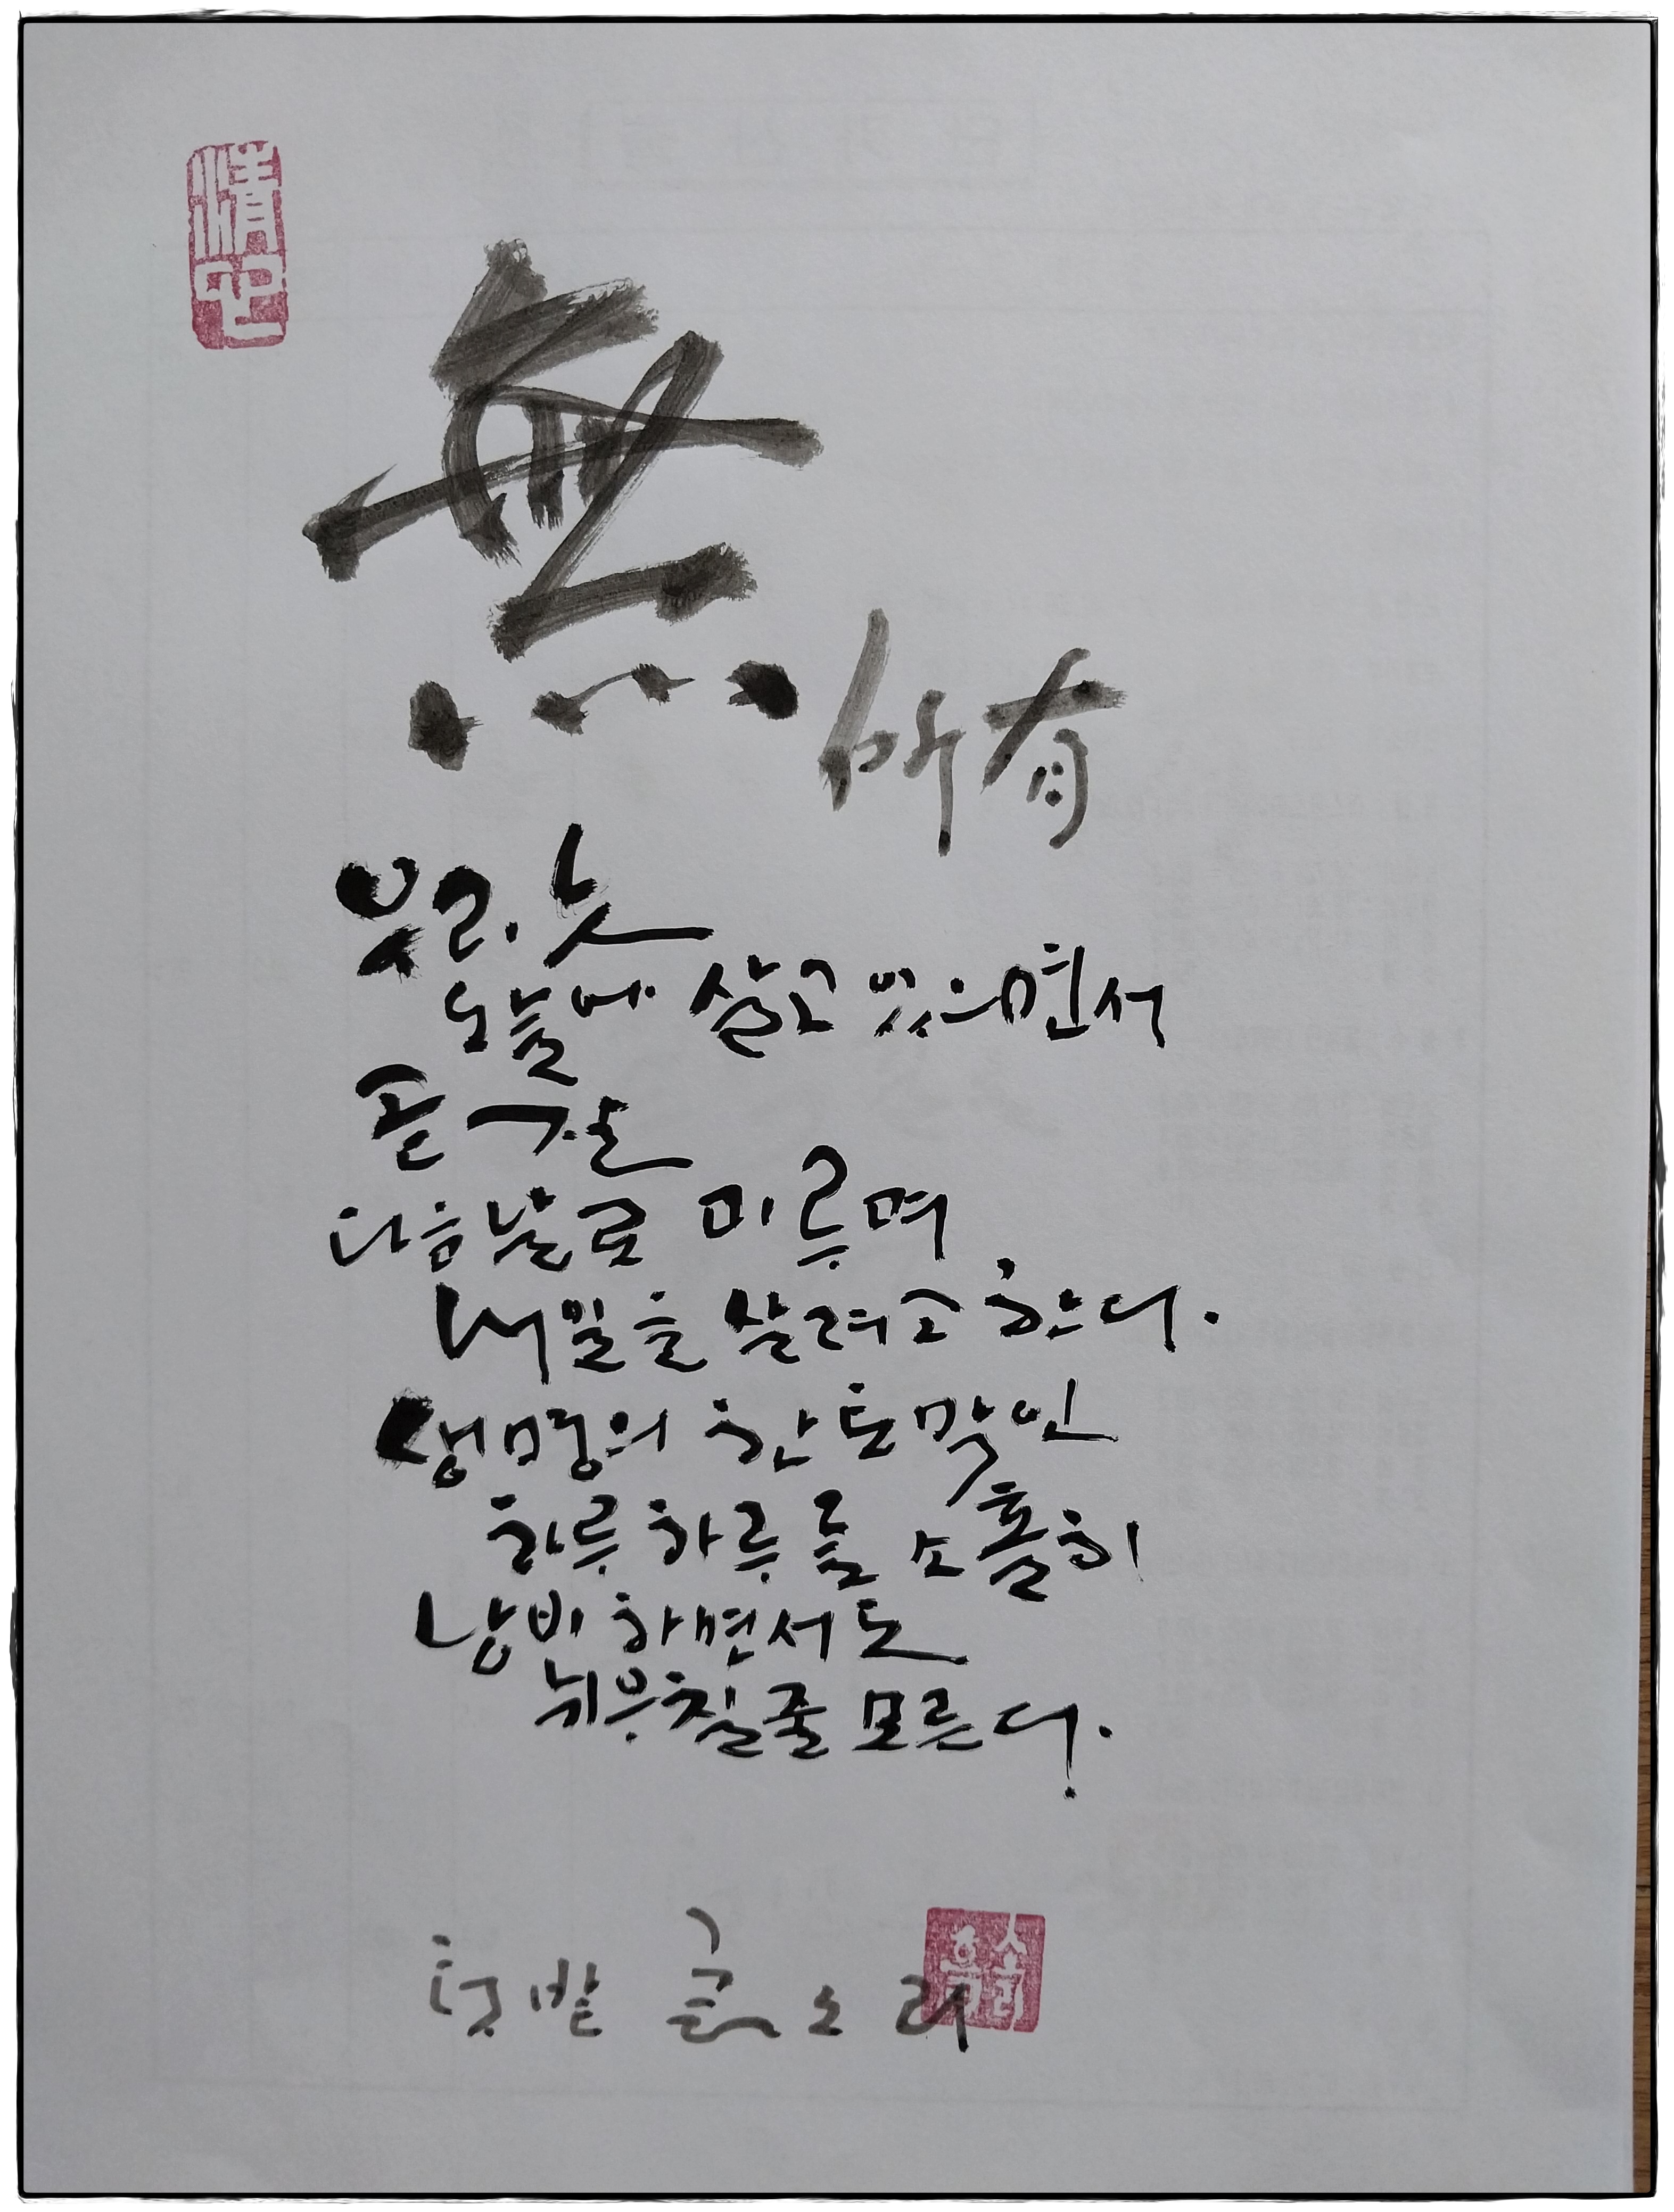 清心
無
所有
우리는
오늘에 살고 있으면서
곧 잘
다음날로 미루며
내일을 살려고 한다.
생명의 한 토막인
하루하루를 소홀히
낭비하면서도
뉘우칠 줄 모른다.
밭 소리